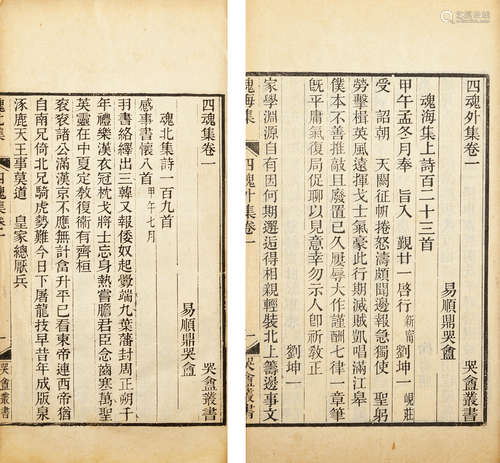 四魂外集卷一 哭盦叢書
易順鼎哭盦
魂海集上詩百二十三首
甲午孟冬月奉 旨入 覲廿一啓行 新甯 劉坤一 峴莊
受 詔朝 天闕征帆捲怒濤頗聞邊報急獨使 聖躬
勞擊楫英風遠揮戈士氣豪此行期滅賊凱唱滿江皋
僕本不善推敲且廢置已久屢辱大作謹酬七律一章筆
旣平庸氣復局促聊以見意幸勿示人卽祈教正 劉坤一
家學淵源自有因何期邂逅得相親輕裝北上籌邊事文
魂海集 四魂外集卷一 一 哭盦叢書
四魂集卷一 哭盦叢書
易順鼎哭盦
魂北集詩一百九首
感事書懷八首 甲午七月
羽書絡繹出三韓又報倭奴起釁端九葉藩封周正朔千
年禮樂漢衣冠枕戈將士忠身熱嘗膽君臣念齒寒萬聖
英靈在中夏定教復衛有齊桓
袞袞諸公滿漢京不應無計奠升平已看東帝連西帝猶
自南兄倚北兄騎虎勢難今日下屠龍技早昔年成版泉
涿鹿天王事莫道 皇家總厭兵
魂北集 四魂集卷一 一 哭盦叢書